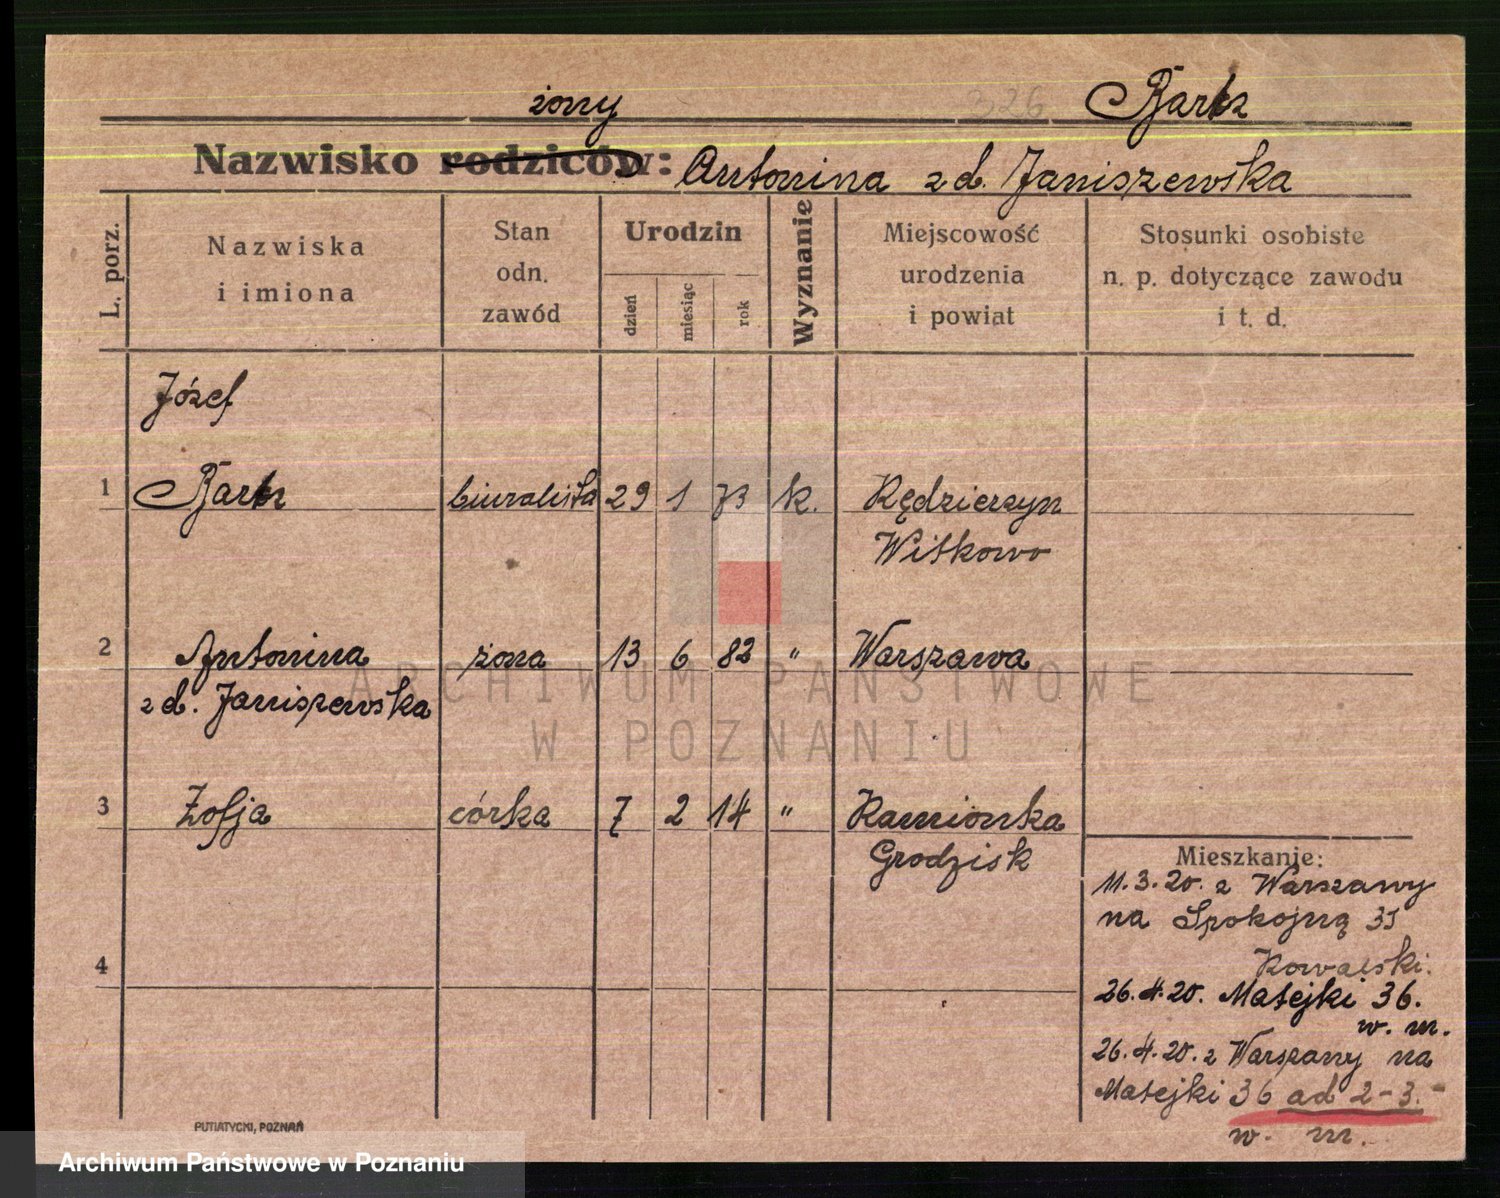 żony 326 Bartz
Nazwisko rodziców: Antonina z d. Janiszewska
L. porz.
Nazwiska
i imiona
Stan
odn.
zawód
Urodzin
dzień
miesiąc
rok
Wyznanie
Miejscowość
urodzenia
i powiat
Stosunki osobiste
n. p. dotyczące zawodu
i t. d.
Józef
1 Bartz biuralista 29 1 73 k. Kędzierzyn
Witkowo
2 Antonina żona 13 6 82 " Warszawa
z d. Janiszewska
3 Zofja córka 7 2 14 " Kamionka
Grodzisk
4
Mieszkanie:
11.3.20. z Warszawy
na Spokojną 35
Kowalski.
26.4.20. Matejki 36.
w. m.
26.4.20. z Warszawy na
Matejki 36 ad 2-3.
w. m.
ARCHIWUM PAŃSTWOWE
W POZNANIU
PUTIATYCKI, POZNAŃ
Archiwum Państwowe w Poznaniu